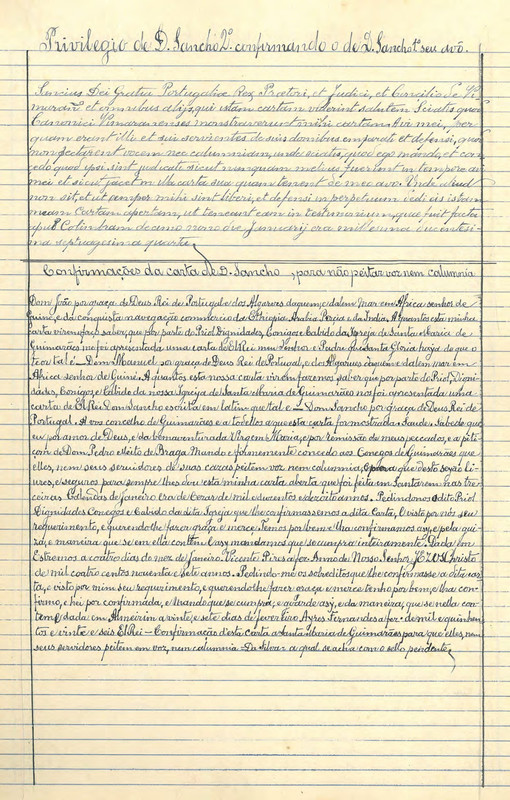 Privilegio de D. Sancho 2º confirmando o de D. Sancho 1º seu avô.
Sancius Dei Gratia Portugaliæ Rex Prætori, et Judici, et Concilio de Vi-
maran. et omnibus alijs, qui istam cartam viderint salutem Sciatis quod
Canonici Vimaranenses monstraverunt mihi cartam Avi mei, per
quam erant illi et sui servientes de suis domibus emparati et defensi, quod
non pectarent vocem nec calumniam, unde sciatis, quod ego mando, et con-
cedo quod ipsi sint judicati sicut nunquam melius fuerunt in tempore avi
mei et sicut jacet in illa carta sua quam tenent de meo avo. Unde aliud
non sit, et ut semper mihi sint liberi, et defensi in perpetuum dedi eis istam
meam cartam apertam, ut teneant eam in testimonium, quæ fuit facta
apud Colimbram decimo nono die Januarij era milesima ducentesi-
ma septuagesima quarta.
Confirmações da carta de D. Sancho, para não peitar vor nem calumnia
Dom João por graça de Deus Rei de Portugal e dos Algarves daquem, e dalem Mar em Africa senhor de
Guiné, e da conquista navegação commercio da Ethiopia Arabia Persia e da India. A quantos esta minha
carta virem faço saber, que por parte do Priol Dignidades, Conigos e Cabido da Igreja de Santa Maria de
Guimarães me foi apresentada uma carta de ElRei meu Senhor e Padre que Santa Gloria haja de que o
teor tal é - Dom Manuel por graça de Deus Rei de Portugal, e dos Algarves daquem e dalem mar em
Africa senhor de Guiné. A quantos esta nossa carta virem fazemos saber que por parte do Priol, Digni-
dades, Conigos, e Cabido da nossa Igreja de Santa Maria de Guimarães nos foi apresentada uma
carta de ElRei Dom Sancho escrita em latim que tal e - Dom Sancho por graça de Deus Rei de
Portugal. A vos concelho de Guimarães e a todo ellos aquem esta carta for mostrada. Saude. Sabede que
eu por amor de Deus, e da bemaventurada Virgem Maria, e por remissão de meus peccados, e a piti-
com de Dom Pedro eleito de Braga Mando e firmemente concedo aos Conegos de Guimarães que
elles, nem seus servidores de suas casas peitem voz nem calumnia, que desto sejão li-
vres, e seguros para sempre lhes dou esta minha carta aberta que foi feita em Santarem nas tre-
ceiras Calendas de Janeiro era de Cesar de mil e duzentos e dezoito annos. Pedindonos o dito Priol
Dignidades Conegos e Cabido da dita Igreja que lhe confirmassemos a dita Carta, O visto por nós seu
requerimento, e querendo lhe fazer graça e merce Temos por bem e lha confirmamos asy, e pela gui-
za, e maneira que se em ella conthem E asy mandamos que se cumpra inteiramente. Dada em
Estremos a coatro dias do mez de Janeiro. Vicente Pires a fez Anno de Nosso Senhor JEZUS Christo
de mil coatro centos noventa e sete annos. Pedindo-me os sobreditos que lhe confirmasse a dita car-
ta, e visto por mim seu requerimento, e querendo lhe fazer graça e merce tenho por bem, e lha con-
firmo, e hei por confirmada, e Mando que se cumpra, e guarde asj, e da maneira, que se nella con-
tem dada em Almeirim a vinte, e sete dias de fevereiro Ayres Fernandes a fez de mil e quinhen-
tos e vinte e seis ElRei - Confirmação desta carta a Santa Maria de Guimarães para que elles, nem
seus servidores peitem em voz, nem calumnia - Da Silvar a qual se acha com o sello pendente.